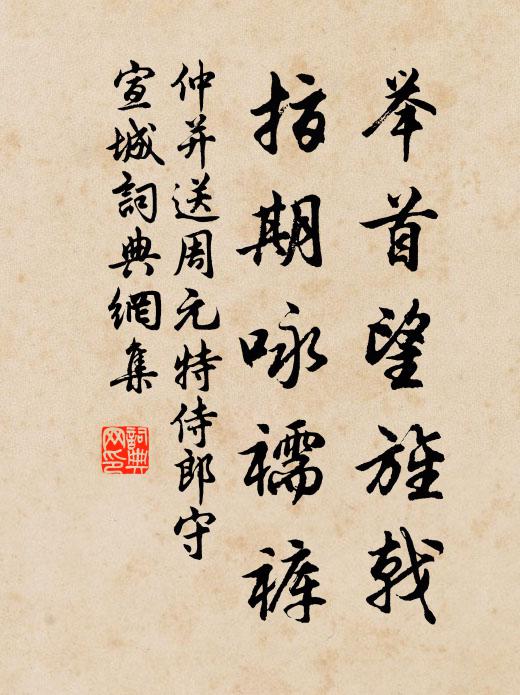 举首望旌戟
指期咏襦裤
仲并送周元特侍郎守
宣城詞典網集
詞典网印